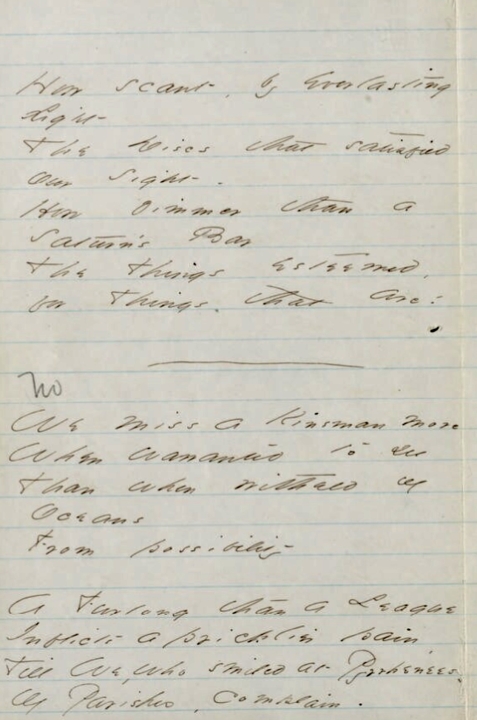 How scant, by Everlasting
Light
The Discs that satisfied
our Sight -
How Dimmer than a
Saturn's Bar
The Things esteemed,
for Things that are!
No
We miss a Kinsman more
When warranted to see
Than when withheld by
Oceans
From possibility
A Furlong than a League
Inflicts a pricklier pain,
Till We, who smiled at Pyrrhenees -
Of Parishes, complain.